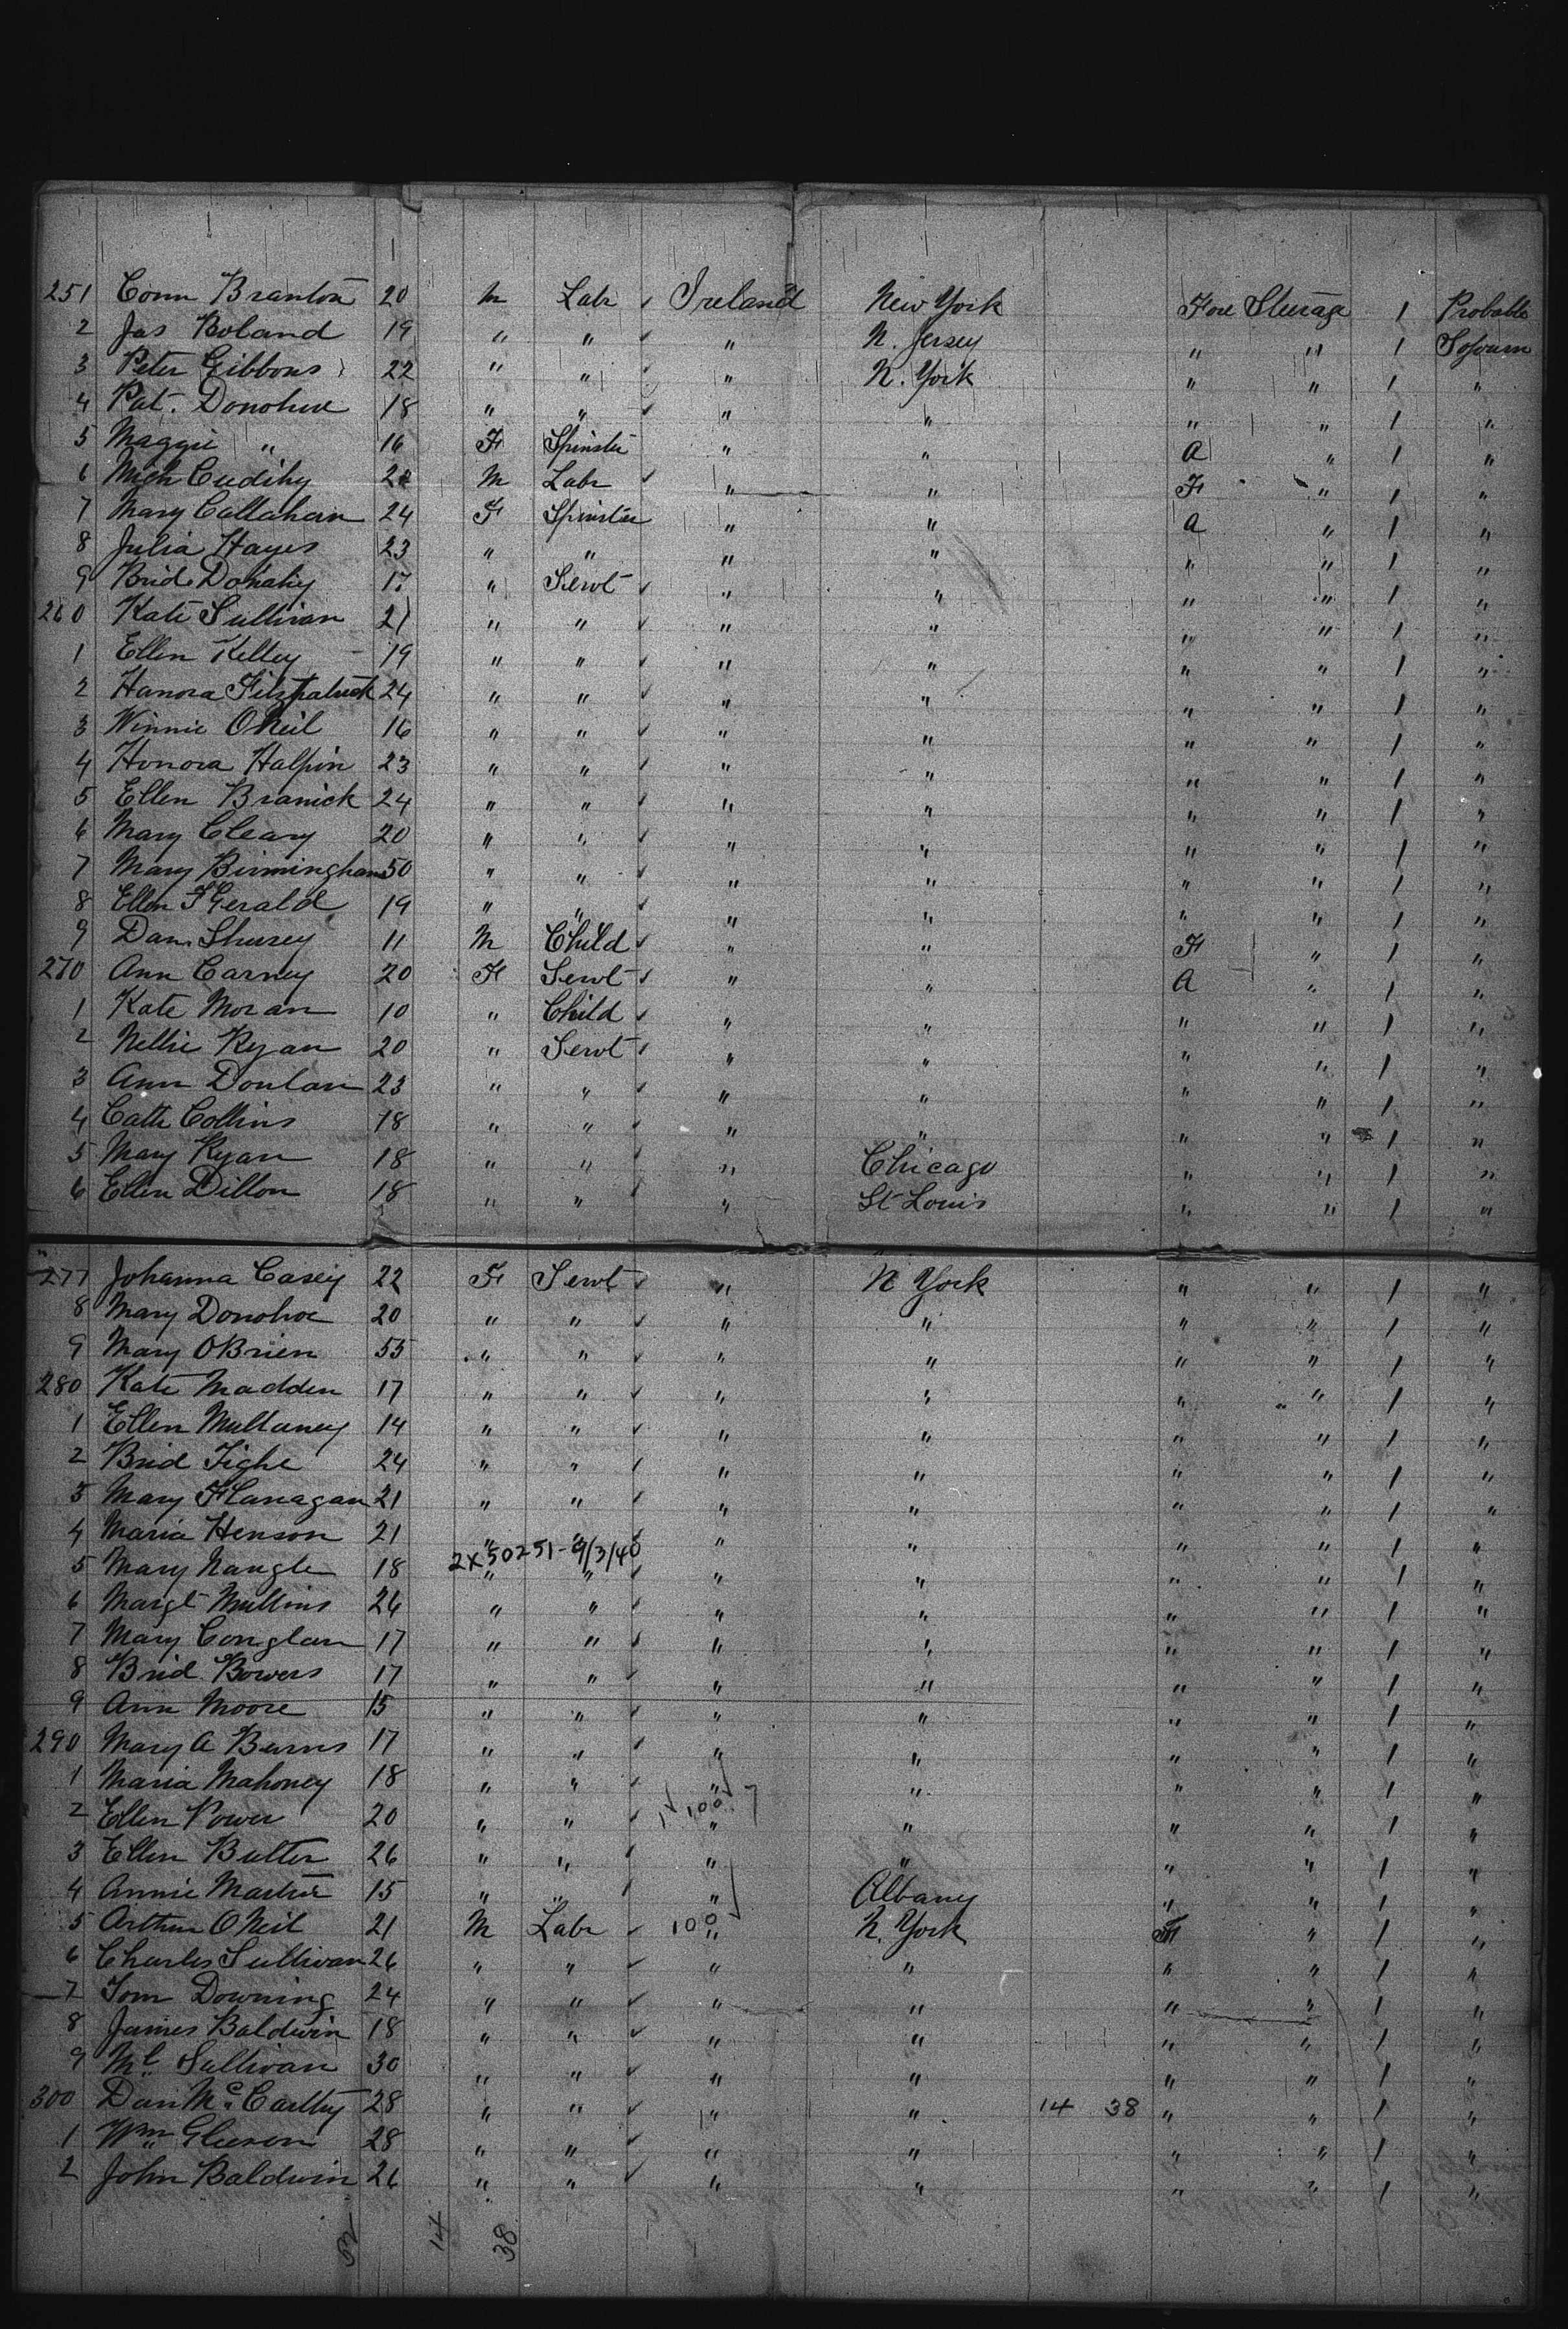 251 Conn Branton 20 M Labr ✓ Ireland New York Fore Steerage 1 Probable
2 Jas Boland 19 " " ✓ " N. Jersey " " 1 Sojourn
3 Peter Gibbons 22 " " ✓ " N. York " " 1 "
4 Pat. Donohue 18 " " ✓ " " " " 1 "
5 Maggie " 16 F Spinster " " A " 1 "
6 Mich Cudihy 22 M Labr ✓ " " F " 1 "
7 Mary Callahan 24 F Spinster " " A " 1 "
8 Julia Hayes 23 " " " " " " 1 "
9 Brid. Donahy 17 " Servt ✓ " " " " 1 "
260 Kate Sullivan 21 " " ✓ " " " " 1 "
1 Ellen Kelley 19 " " ✓ " " " " 1 "
2 Hanora Fitzpatrick 24 " " ✓ " " " " 1 "
3 Winnie ONeil 16 " " ✓ " " " " 1 "
4 Honora Halpin 23 " " ✓ " " " " 1 "
5 Ellen Branick 24 " " ✓ " " " " 1 "
6 Mary Cleary 20 " " ✓ " " " " 1 "
7 Mary Birmingham 50 " " ✓ " " " " 1 "
8 Ellen FGerald 19 " " ✓ " " " " 1 "
9 Dan. Shurey 11 M Child ✓ " " F " 1 "
270 Ann Carney 20 F Servt ✓ " " A " 1 "
1 Kate Moran 10 " Child ✓ " " " " 1 "
2 Nellie Ryan 20 " Servt ✓ " " " " 1 "
3 Ann Donlan 23 " " ✓ " " " " 1 "
4 Cath Collins 18 " " ✓ " " " " 1 "
5 Mary Ryan 18 " " ✓ " Chicago " " 1 "
6 Ellen Dillon 18 " " ✓ " St Louis " " 1 "
277 Johanna Casey 22 F Servt ✓ " N York " " 1 "
8 Mary Donohoe 20 " " ✓ " " " " 1 "
9 Mary OBrien 55 " " ✓ " " " " 1 "
280 Kate Madden 17 " " ✓ " " " " 1 "
1 Ellen Mullaney 14 " " ✓ " " " " 1 "
2 Brid Tighe 24 " " ✓ " " " " 1 "
3 Mary Flanagan 21 " " ✓ " " " " 1 "
4 Maria Henson 21 " " ✓ " " " " 1 "
2X50251-9/3/40
5 Mary Nangle 18 " " ✓ " " " " 1 "
6 Margt Mullins 26 " " ✓ " " " " 1 "
7 Mary Conglan 17 " " ✓ " " " " 1 "
8 Brid. Bowers 17 " " ✓ " " " " 1 "
9 Ann Moore 15 " " ✓ " " " " 1 "
290 Mary A Burns 17 " " ✓ " " " " 1 "
1 Maria Mahoney 18 " " ✓ " " " " 1 "
2 Ellen Power 20 " " ✓ 100 " " " " 1 "
3 Ellen Butler 26 " " ✓ " " " " 1 "
4 Annie Martin 15 " " ✓ " Albany " " 1 "
5 Arthur ONeil 21 M Labr ✓ 100 " N. York F " 1 "
6 Charles Sullivan 26 " " ✓ " " " " 1 "
7 Tom Downing 24 " " ✓ " " " " 1 "
8 James Baldwin 18 " " ✓ " " " " 1 "
9 Ml Sullivan 30 " " ✓ " " " " 1 "
300 Dan McCarthy 28 " " ✓ " " 14 38 " " 1 "
1 Wm Gleeson 28 " " ✓ " " " " 1 "
2 John Baldwin 26 " " ✓ " " " " 1 "
52 14 38